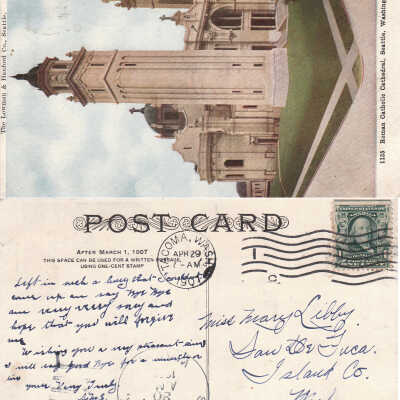 The Lowman & Hanford Co., Seattle.
1125 Roman Catholic Cathedral, Seattle, Washing
POST CARD
AFTER MARCH 1, 1907
THIS SPACE CAN BE USED FOR A WRITTEN MESSAGE
USING ONE-CENT STAMP
TACOMA, WASH.
APR 29
7-AM
1907
C.
Left in such a hurry that I couldn't
come up an say Bye Bye
am very very sorry and
hope that you will forgive
me
Wishing you a very pleasant time
I will say good Bye for a while
your Very Truly
Miss Mary Libby
San De Fuca
Island Co.